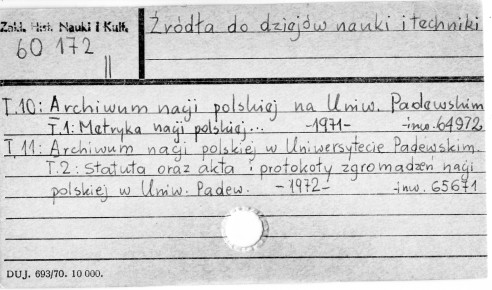 Zakł. Hist. Nauki i Kult.
60 172
II
Źródła do dziejów nauki i techniki
T.10: Archiwum nacji polskiej na Uniw. Padewskim
T.1: Metryka nacji polskiej... -1971- -inw. 64972
T.11: Archiwum nacji polskiej w Uniwersytecie Padewskim.
T.2: Statuta oraz akta i protokoły zgromadzeń nacji
polskiej w Uniw. Padew. -1972- -inw. 65671
DUJ. 693/70. 10 000.